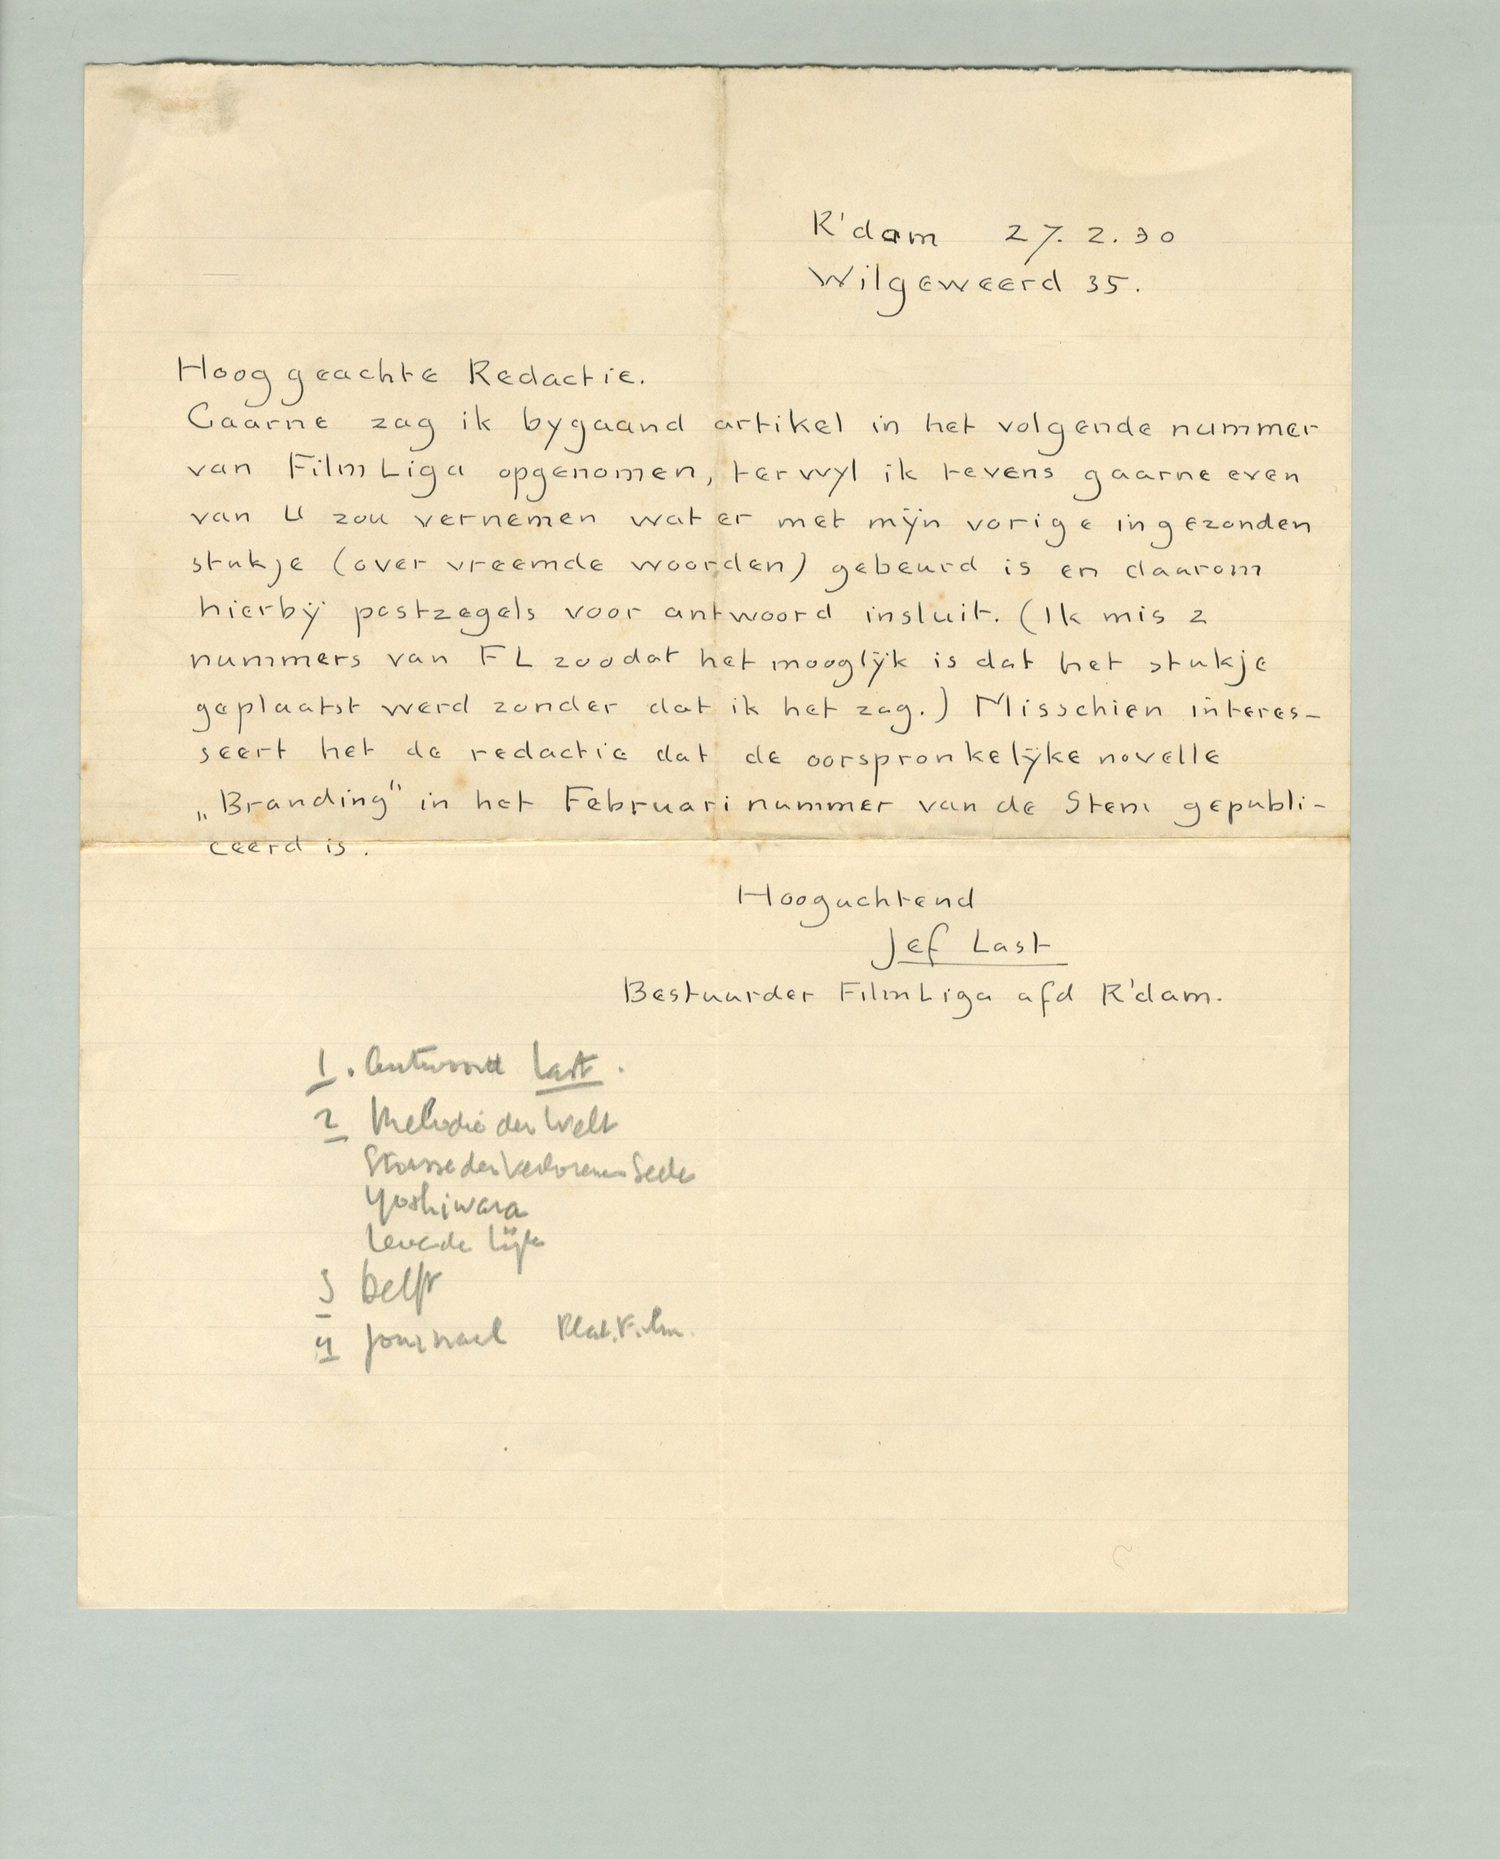 R'dam 27.2.30
Wilgeweerd 35.
Hooggeachte Redactie.
Gaarne zag ik bygaand artikel in het volgende nummer
van FilmLiga opgenomen, terwyl ik tevens gaarne even
van U zou vernemen wat er met mijn vorige ingezonden
stukje (over vreemde woorden) gebeurd is en daarom
hierbij postzegels voor antwoord insluit. (Ik mis 2
nummers van FL zoodat het mooglijk is dat het stukje
geplaatst werd zonder dat ik het zag.) Misschien interes-
seert het de redactie dat de oorspronkelijke novelle
„Branding" in het Februari nummer van de Stem gepubli-
ceerd is.
Hoogachtend
Jef Last
Bestuurder FilmLiga afd R'dam.
1. Antwoord Last.
2 Melodie der Welt
Strasse der Verlorenen Seelen
Yoshiwara
Levende Lijk
3 Delft
4 Journaal Film.